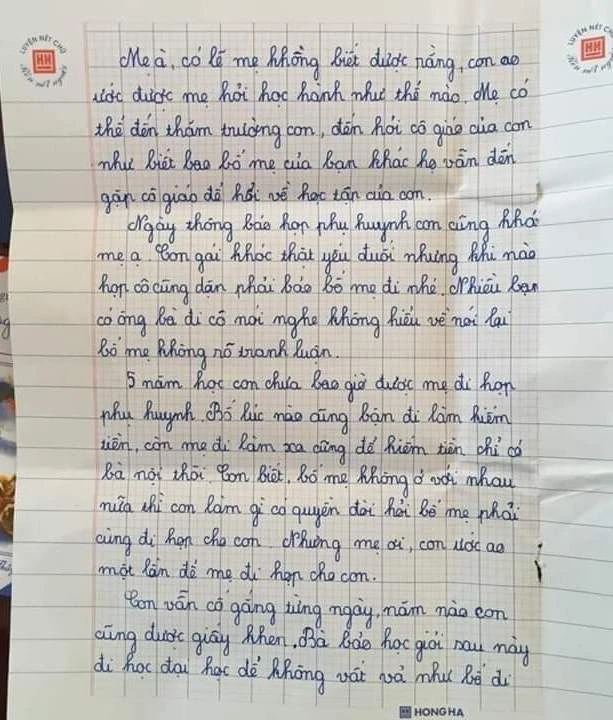 LUYỆN NÉT CHỮ
HH
RÈN NẾT NGƯỜI
LUYỆN NÉT CHỮ
HH
Mẹ à, có lẽ mẹ không biết được rằng, con ao
ước được mẹ hỏi học hành như thế nào. Mẹ có
thể đến thăm trường con, đến hỏi cô giáo của con
như biết bao bố mẹ của bạn khác họ vẫn đến
gặp cô giáo để hỏi về học tập của con.
Ngày thông báo họp phụ huynh con cũng khó
mẹ ạ. Con gái khóc thật yếu đuối nhưng khi nào
họp cô cũng dặn phải bảo bố mẹ đi nhé. Nhiều bạn
có ông bà đi cô nói nghe không hiểu về nói lại
bố mẹ không rõ tranh luận.
5 năm học con chưa bao giờ được mẹ đi họp
phụ huynh. Bố lúc nào cũng bận đi làm kiếm
tiền, còn mẹ đi làm xa cũng để kiếm tiền chỉ có
bà nội thôi. Con biết, bố mẹ không ở với nhau
nữa thì con làm gì có quyền đòi hỏi bố mẹ phải
cùng đi họp cho con. Nhưng mẹ ơi, con ước ao
một lần để mẹ đi họp cho con.
Con vẫn cố gắng từng ngày, năm nào con
cũng được giấy khen. Bà bảo học giỏi sau này
đi học đại học để không vất vả như bố đi
HONGHA